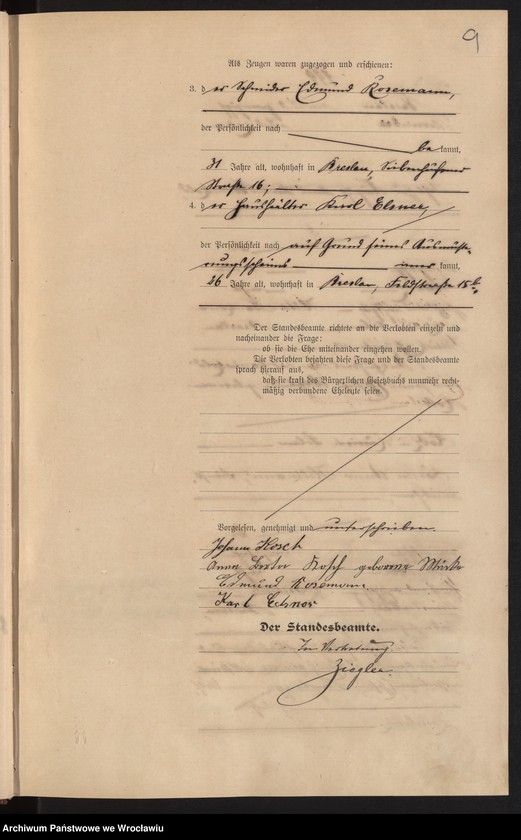 9
Als Zeugen waren zugezogen und erschienen:
3. der Schneider Edmund Kosemann,
der Persönlichkeit nach
bekannt,
31 Jahre alt, wohnhaft in Breslau, Siebenhufener
Straße 16;
4. der Haushälter Karl Elsner,
der Persönlichkeit nach auf Grund seines Ausmuste-
rungsscheins kannt,
26 Jahre alt, wohnhaft in Breslau, Feldstraße 15b.
Der Standesbeamte richtete an die Verlobten einzeln und
nacheinander die Frage:
ob sie die Ehe miteinander eingehen wollen.
Die Verlobten bejahten diese Frage und der Standesbeamte
sprach hierauf aus,
daß sie kraft des Bürgerlichen Gesetzbuchs nunmehr recht-
mäßig verbundene Eheleute seien.
Vorgelesen, genehmigt und unterschrieben.
Johann Kosch
Anna Kosch geborene
Edmund Kosemann
Karl
Der Standesbeamte.
In Vertretung
Ziegler
Archiwum Państwowe we Wrocławiu